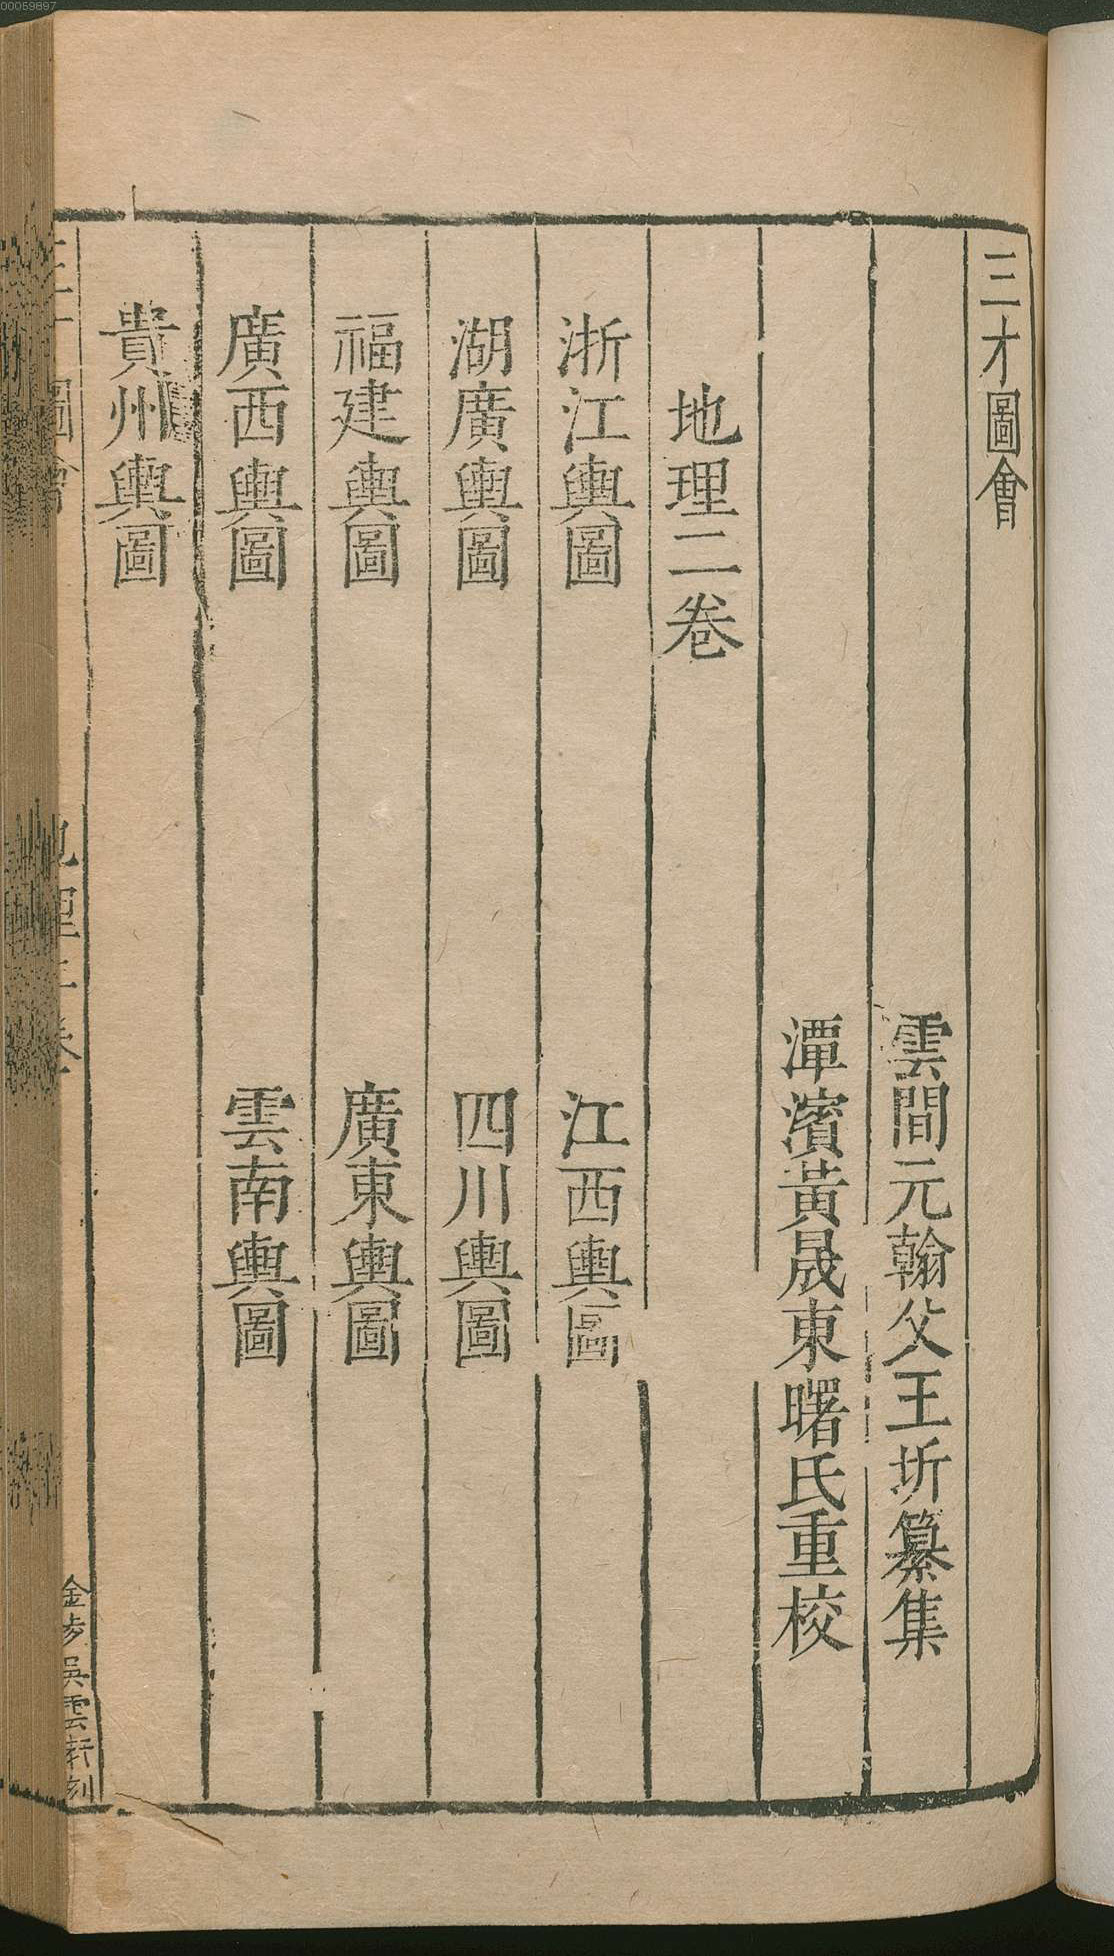 00059897
三才圖會
雲間元翰父王圻纂集
潭濱黃晟東曙氏重校
地理二卷
浙江輿圖
江西輿圖
湖廣輿圖
四川輿圖
福建輿圖
廣東輿圖
廣西輿圖
雲南輿圖
貴州輿圖
三才圖會
地理二卷
吳雲軒刻